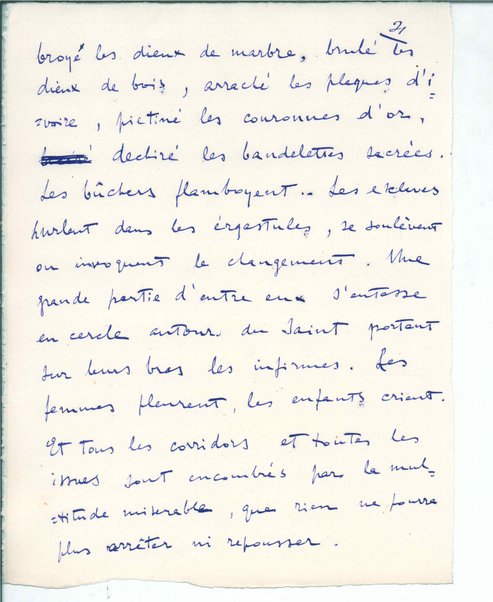 21
broyé les dieux de marbre, brulé les
dieux de bois, arraché les plaques d'i=
=voire, piétiné les couronnes d'or,
déchiré les bandelettes sacrées.
Les bûchers flamboyent.. Les esclaves
hurlent dans les érgastules, se soulèvent
ou invoquent le changement. Une
grande partie d'entre eux s'entasse
en cercle autour du Saint portant
sur leurs bras les infirmes. Les
femmes pleurent, les enfants crient.
Et tous les corridors et toutes les
issues sont encombrés par la mul=
=titude miserable, que rien ne pourra
plus arrêter ni repousser.